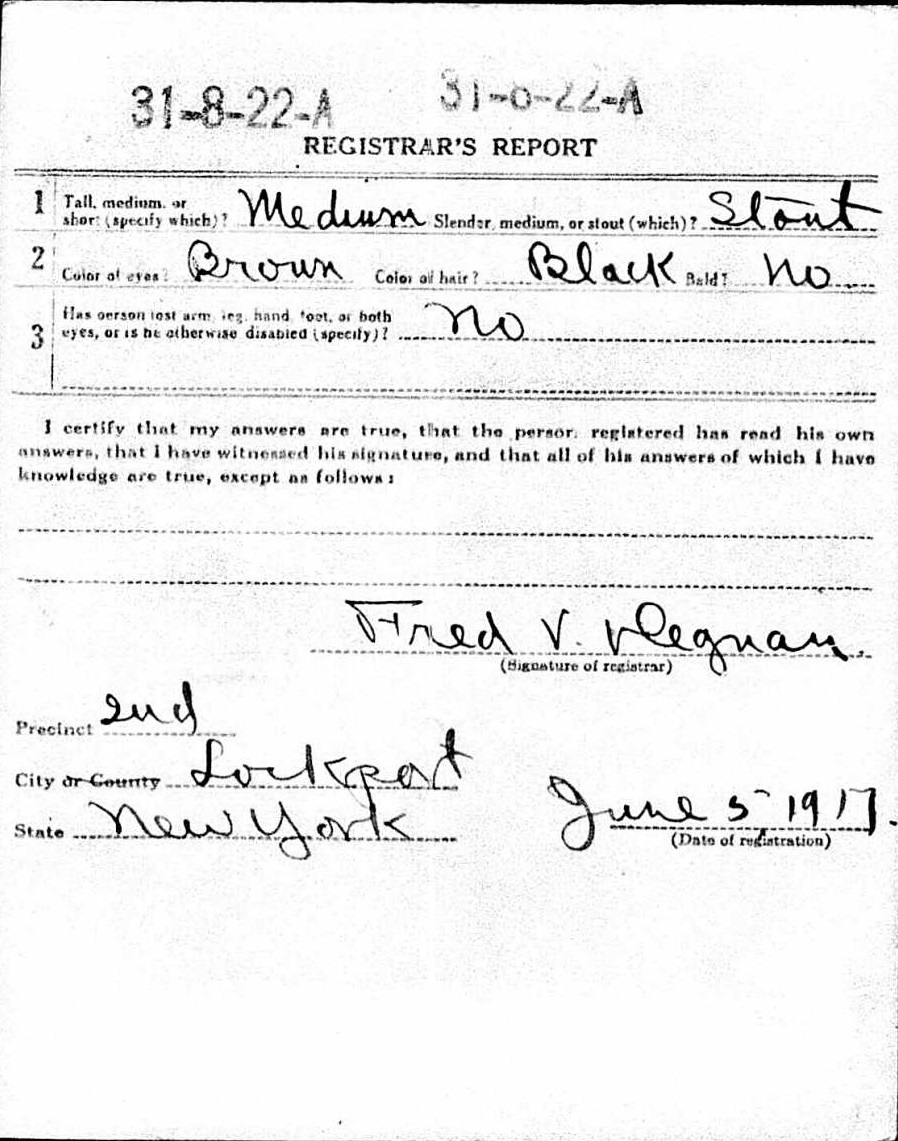 31-8-22-A 31-8-22-A
REGISTRAR'S REPORT
1 Tall, medium, or
short (specify which)? Medium Slender, medium, or stout (which)? Stout
2 Color of eyes? Brown Color of hair? Black Bald? No
3 Has person lost arm, leg, hand, foot, or both
eyes, or is he otherwise disabled (specify)? No
I certify that my answers are true, that the person registered has read his own
answers, that I have witnessed his signature, and that all of his answers of which I have
knowledge are true, except as follows:
Fred V.
(Signature of registrar)
Precinct 2nd
City or County Lockport
State New York June 5, 1917.
(Date of registration)